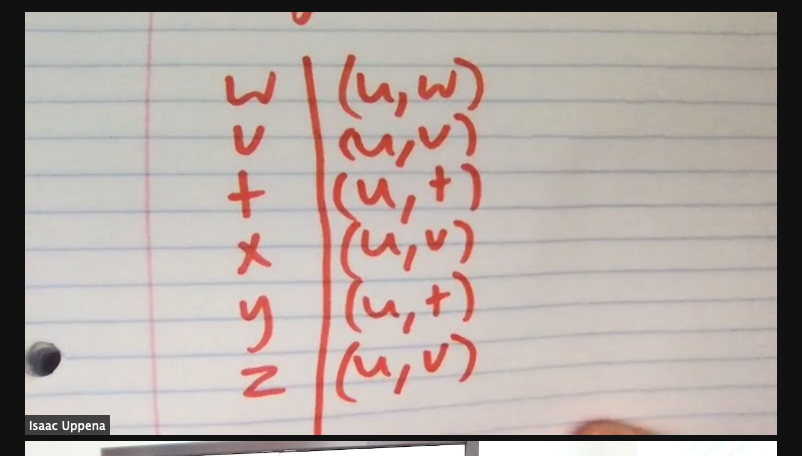 w | (u, w)
v | (u, v)
t | (u, t)
x | (u, v)
y | (u, t)
z | (u, v)
Isaac Uppena